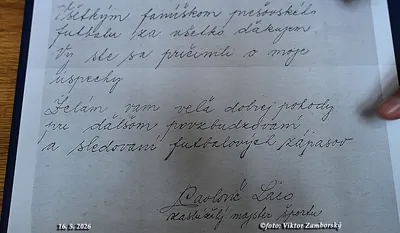 Všetkým fanúškom prešovského
futbalu za všetko ďakujem
Vy ste sa pričinili o moje
úspechy
Želám vam veľa dobrej pohody
pri ďalšom povzbudzovaní
a sledovaní futbalových zápasov
Pavlovič Laco
zaslúžilý majster športu
16. 5. 2026
©foto: Viktor Zamborský